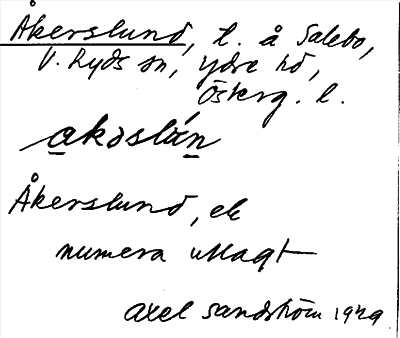 Åkerslund, t. å Salebo,
V. Ryds sn, Ydre hd,
Österg. l.
akəslún
Åkerslund, ek
numera utlagt
Axel Sandström 1929